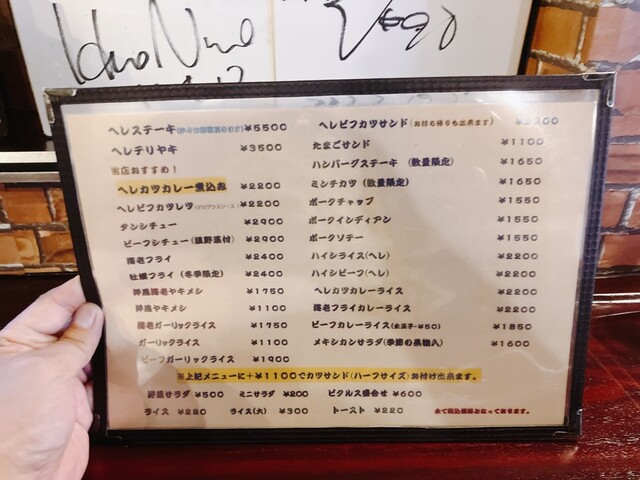 ヘレステーキ ¥5500
ヘレテリヤキ ¥3500
当店おすすめ！
ヘレカツカレー煮込み ¥2200
ヘレビフカツレツ(デミグラスソース) ¥2200
タンシチュー ¥2900
ビーフシチュー(温野菜付) ¥2900
海老フライ ¥2400
牡蠣フライ (冬季限定) ¥2400
洋風海老ヤキメシ ¥1750
洋風ヤキメシ ¥1100
海老ガーリックライス ¥1750
ガーリックライス ¥1100
ビーフガーリックライス ¥1900
ヘレビフカツサンド(お持ち帰りも出来ます) ¥2200
たまごサンド ¥1100
ハンバーグステーキ (数量限定) ¥1650
ミンチカツ (数量限定) ¥1650
ポークチャップ ¥1550
ポークインディアン ¥1550
ポークソテー ¥1550
ハイシライス(ヘレ) ¥2200
ハイシビーフ(ヘレ) ¥2200
ヘレカツカレーライス ¥2200
海老フライカレーライス ¥2200
ビーフカレーライス(生玉子+¥50) ¥1850
メキシカンサラダ(季節の果物入) ¥1600
※上記メニューに+¥1100でカツサンド(ハーフサイズ)お付け出来ます。
野菜サラダ ¥500 ミニサラダ ¥200 ピクルス盛合せ ¥600
ライス ¥220 ライス(大) ¥300 トースト ¥220 全て税込価格となっております。